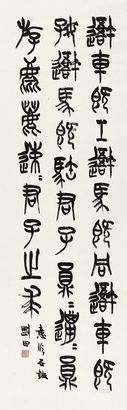 避車既工避馬既同避車既
好避馬既𩢿君子員〻邋〻員
斿麀鹿速〻君子之求
剛田